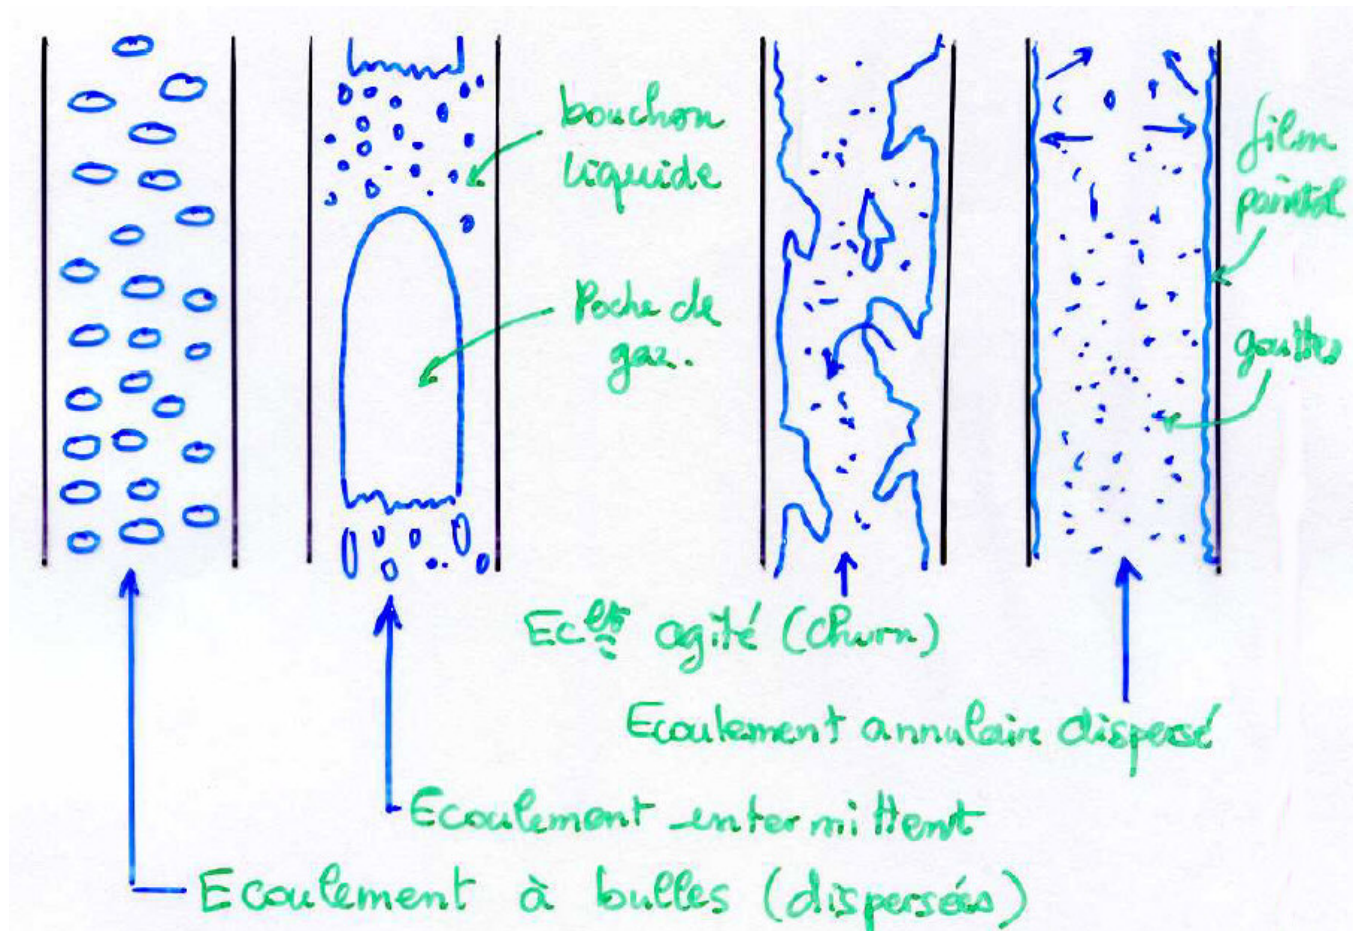 bouchon
liquide
Poche de
gaz.
film
pariétal
gouttes
Ec^lt agité (Churn)
Ecoulement annulaire dispersé
Ecoulement intermittent
Ecoulement à bulles (dispersées)